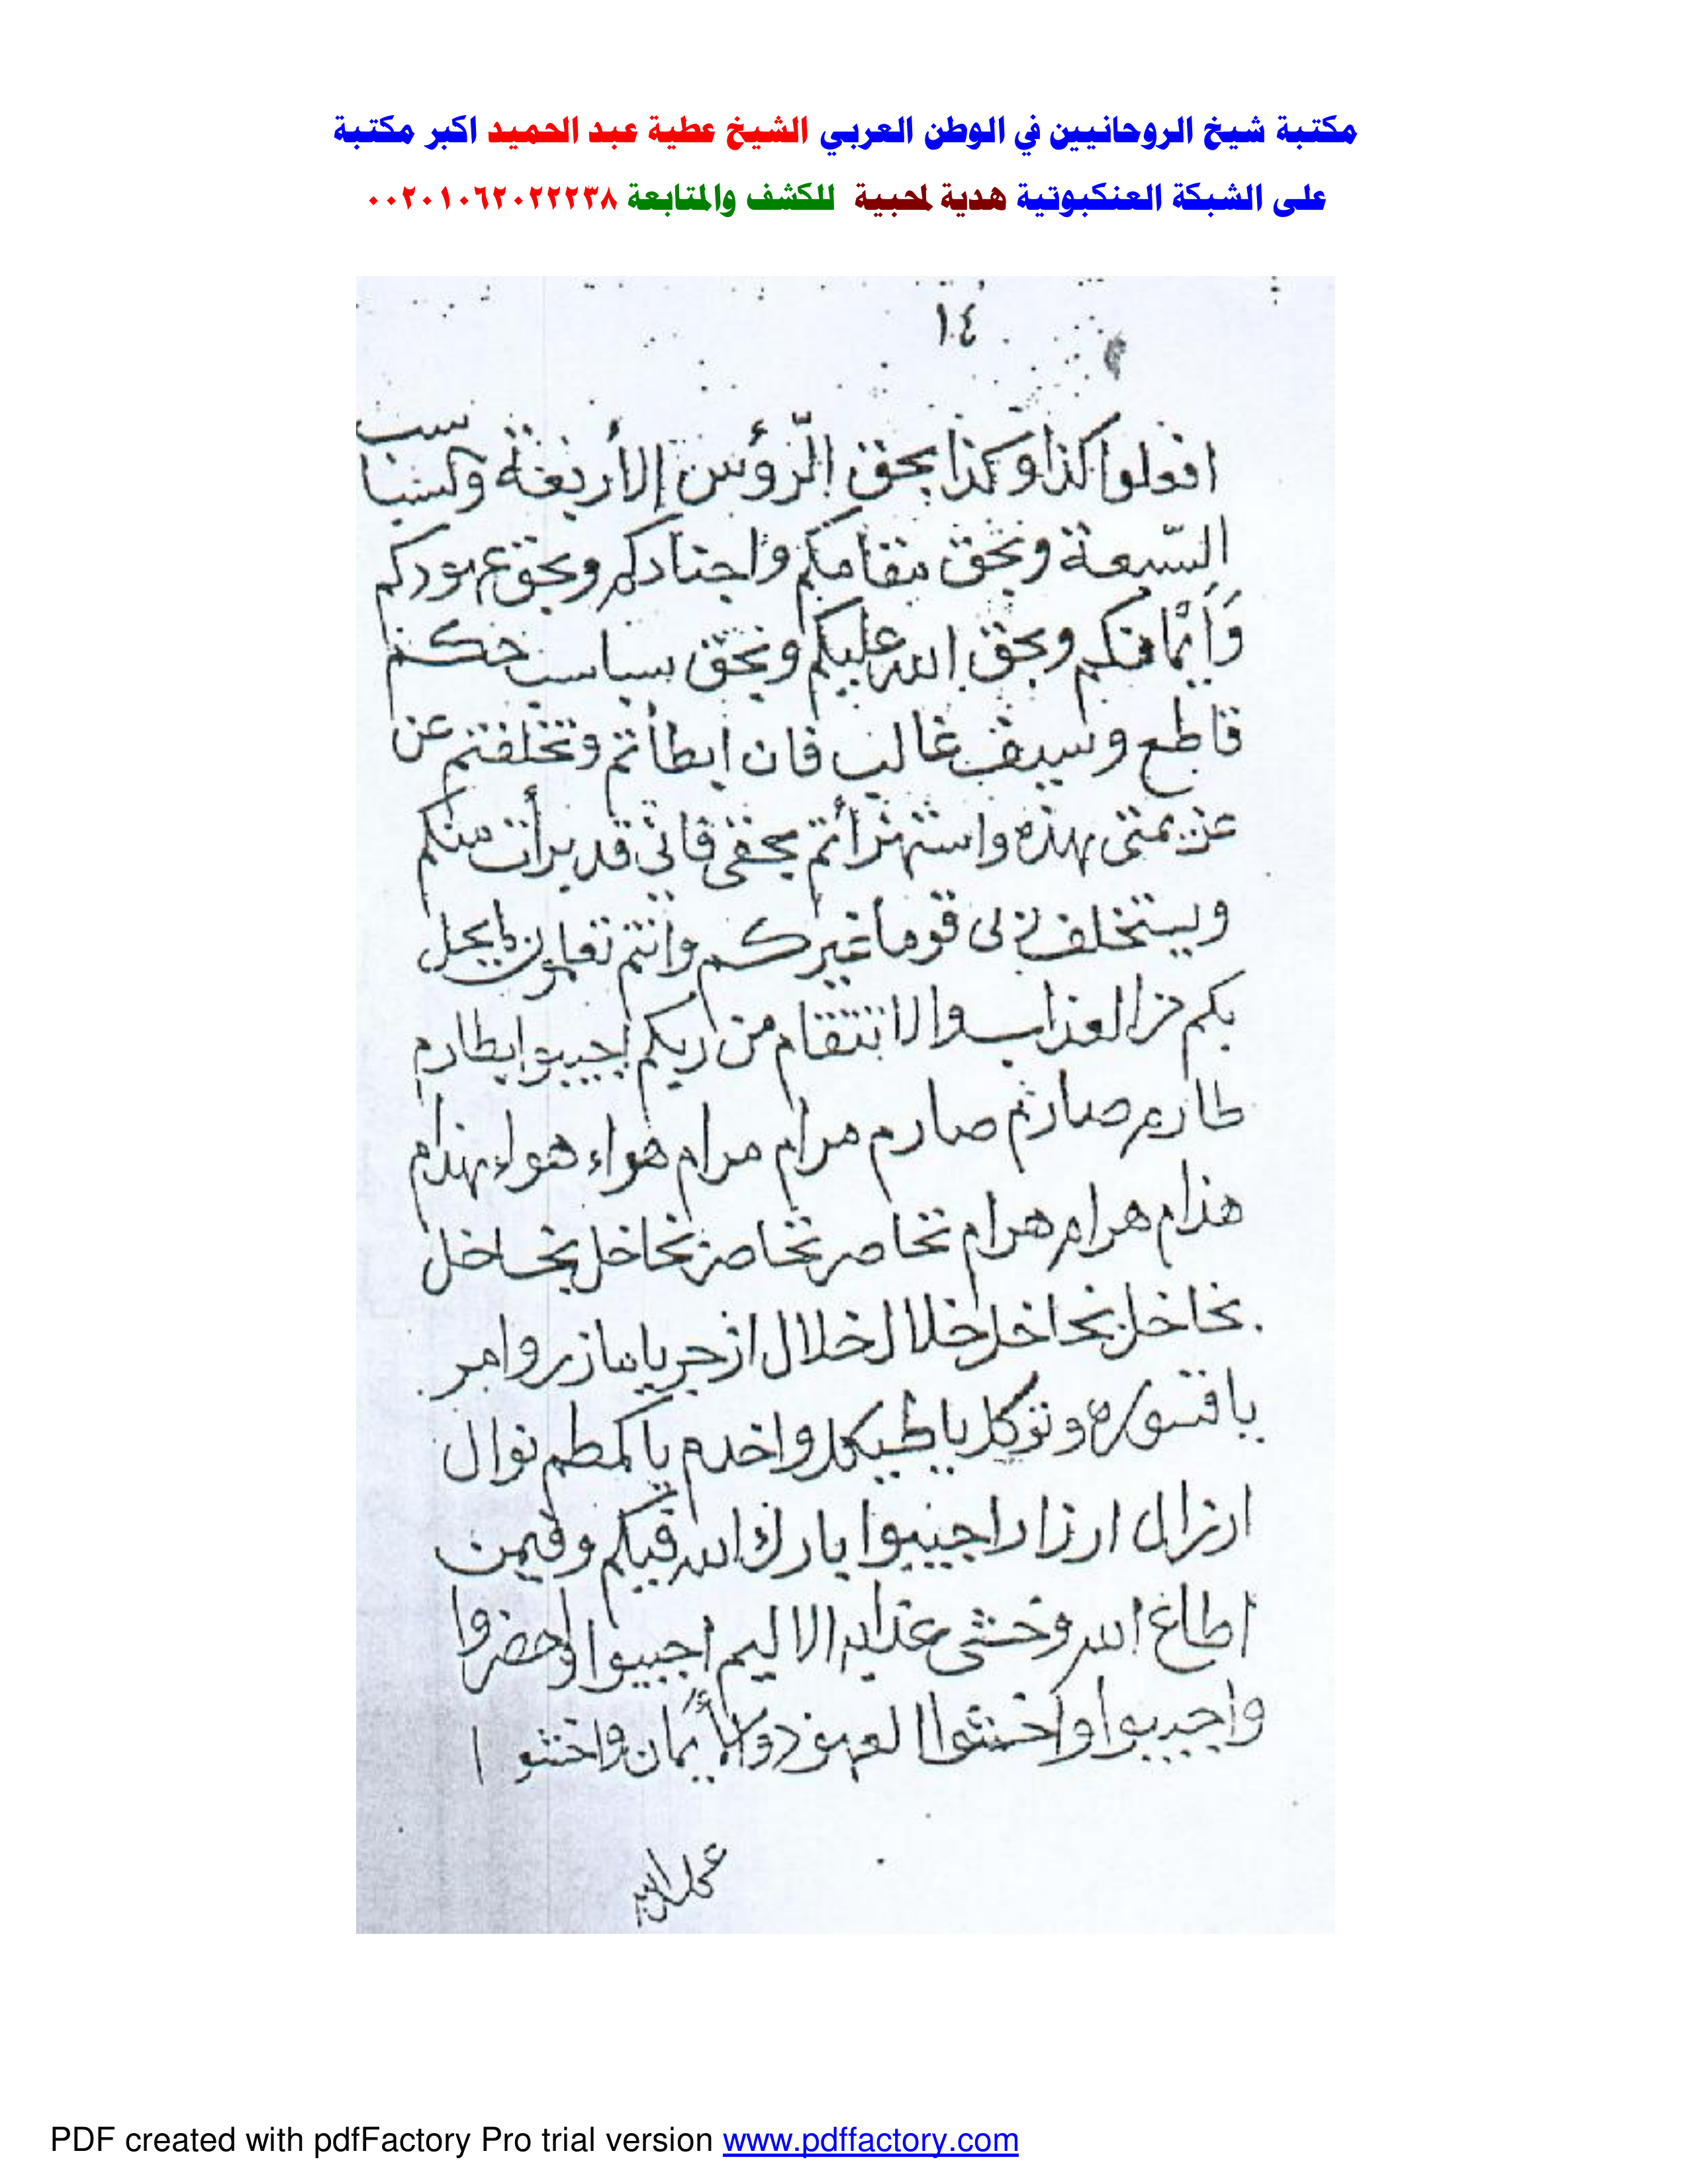 مكتبة شيخ الروحانيين في الوطن العربي الشيخ عطية عبد الحميد اكبر مكتبة
على الشبكة العنكبوتية هدية لمحبية للكشف والمتابعة ٠٠٢٠١٠٦٢٠٢٢٢٣٨
١٤
افعلوا كذا وكذا بحق الرّؤس الأربعة
السّبعة وبحق مقامكم واجنادكم وبحق عهودكم
وَأَيْمانكم وبحق الله عليكم وبحق سباسب حكم
قاطع وسيف غالب فان ابطأتم وتخلفتم عن
عزيمتى بهذه واستهزأتم بحقى فانى قد برأت منكم
ويستخلف ربى قوما غيركم وانتم تعلمون ما يحل
بكم من العذاب والانتقام من ربكم اجيبوا بطارم
طارم صارم صارم مرام مرام هواء هواء بهذام
هذام هرام هرام تخاصر تخاصر نخاخل نخاخل
نخاخل نخاخل خلال خلال ازجر يا مازر وامر
يا قسوره وتوكل يا طيكل واخدم يا كمطم نوال
ارزال ارزال اجيبوا بارك الله فيكم وفيمن
اطاع الله وخشى عذابه الاليم اجيبوا واحضروا
واجيبوا واخشوا العهود والأيمان واخشوا
PDF created with pdfFactory Pro trial version www.pdffactory.com